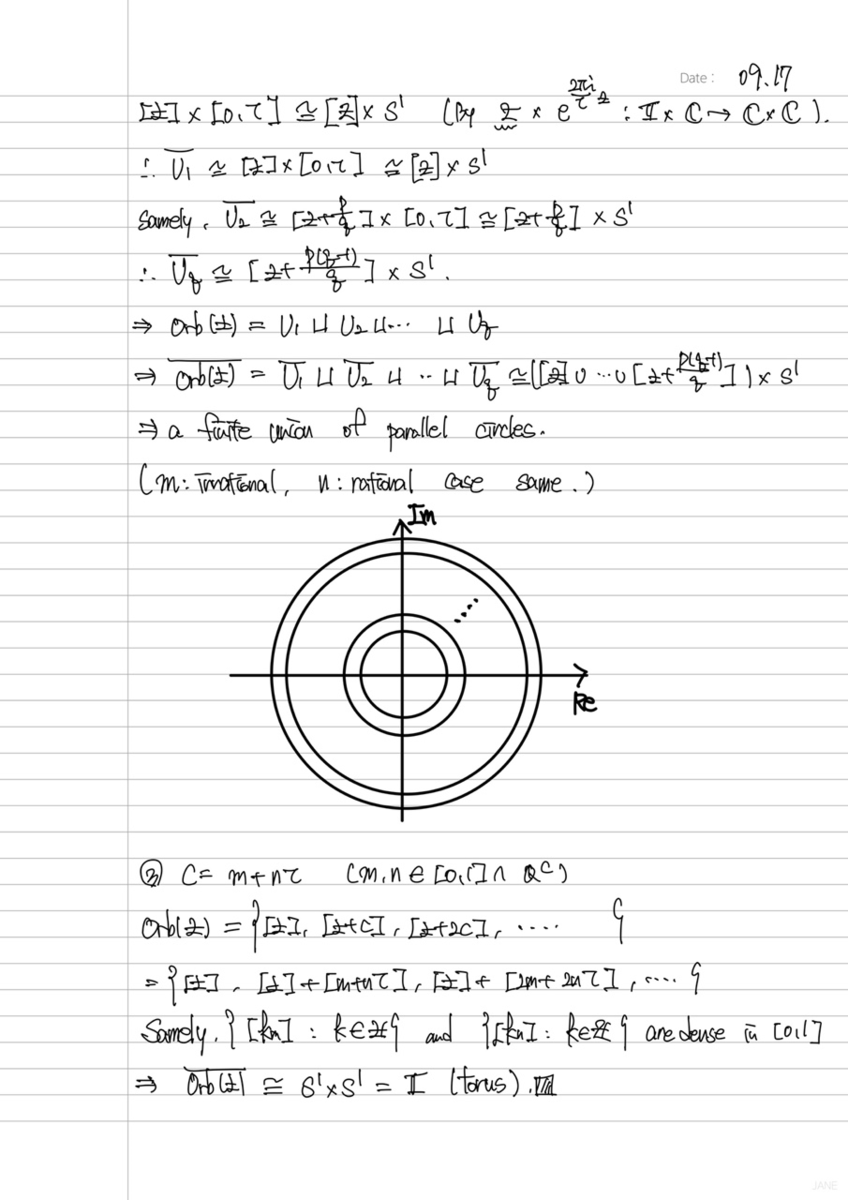 Date : 09.17
[z] × [0,τ] ≅ [z] × S¹ (by z × e^{\frac{2πi}{τ} z} : 𝕋 × ℂ → ℂ × ℂ ).
∴ \overline{U₁} ≅ [z] × [0,τ] ≅ [z] × S¹
Samely, \overline{U₂} ≅ [z+\frac{p}{q}] × [0,τ] ≅ [z+\frac{p}{q}] × S¹
∴ \overline{U_q} ≅ [z+\frac{p(q-1)}{q}] × S¹.
⇒ Orb(z) = U₁ ⊔ U₂ ⊔ ··· ⊔ U_q
⇒ \overline{Orb(z)} = \overline{U₁} ⊔ \overline{U₂} ⊔ ·· ⊔ \overline{U_q} ≅ ([z] ∪ ··· ∪ [z+\frac{p(q-1)}{q}]) × S¹
⇒ a finite union of parallel circles.
(m: irrational, n: rational case same.)
Im
Re
③ C = m+nτ (m,n ∈ [0,1] ∩ ℚ^C)
Orb(z) = {[z], [z+c], [z+2c], ···· }
= {[z], [z]+[m+nτ], [z]+ [2m+2nτ], ···· }
Samely, {[kn] : k∈ℤ} and {[kn] : k∈ℤ} are dense in [0,1]
⇒ \overline{Orb(z)} ≅ S¹×S¹ = 𝕋 (torus).
JANE